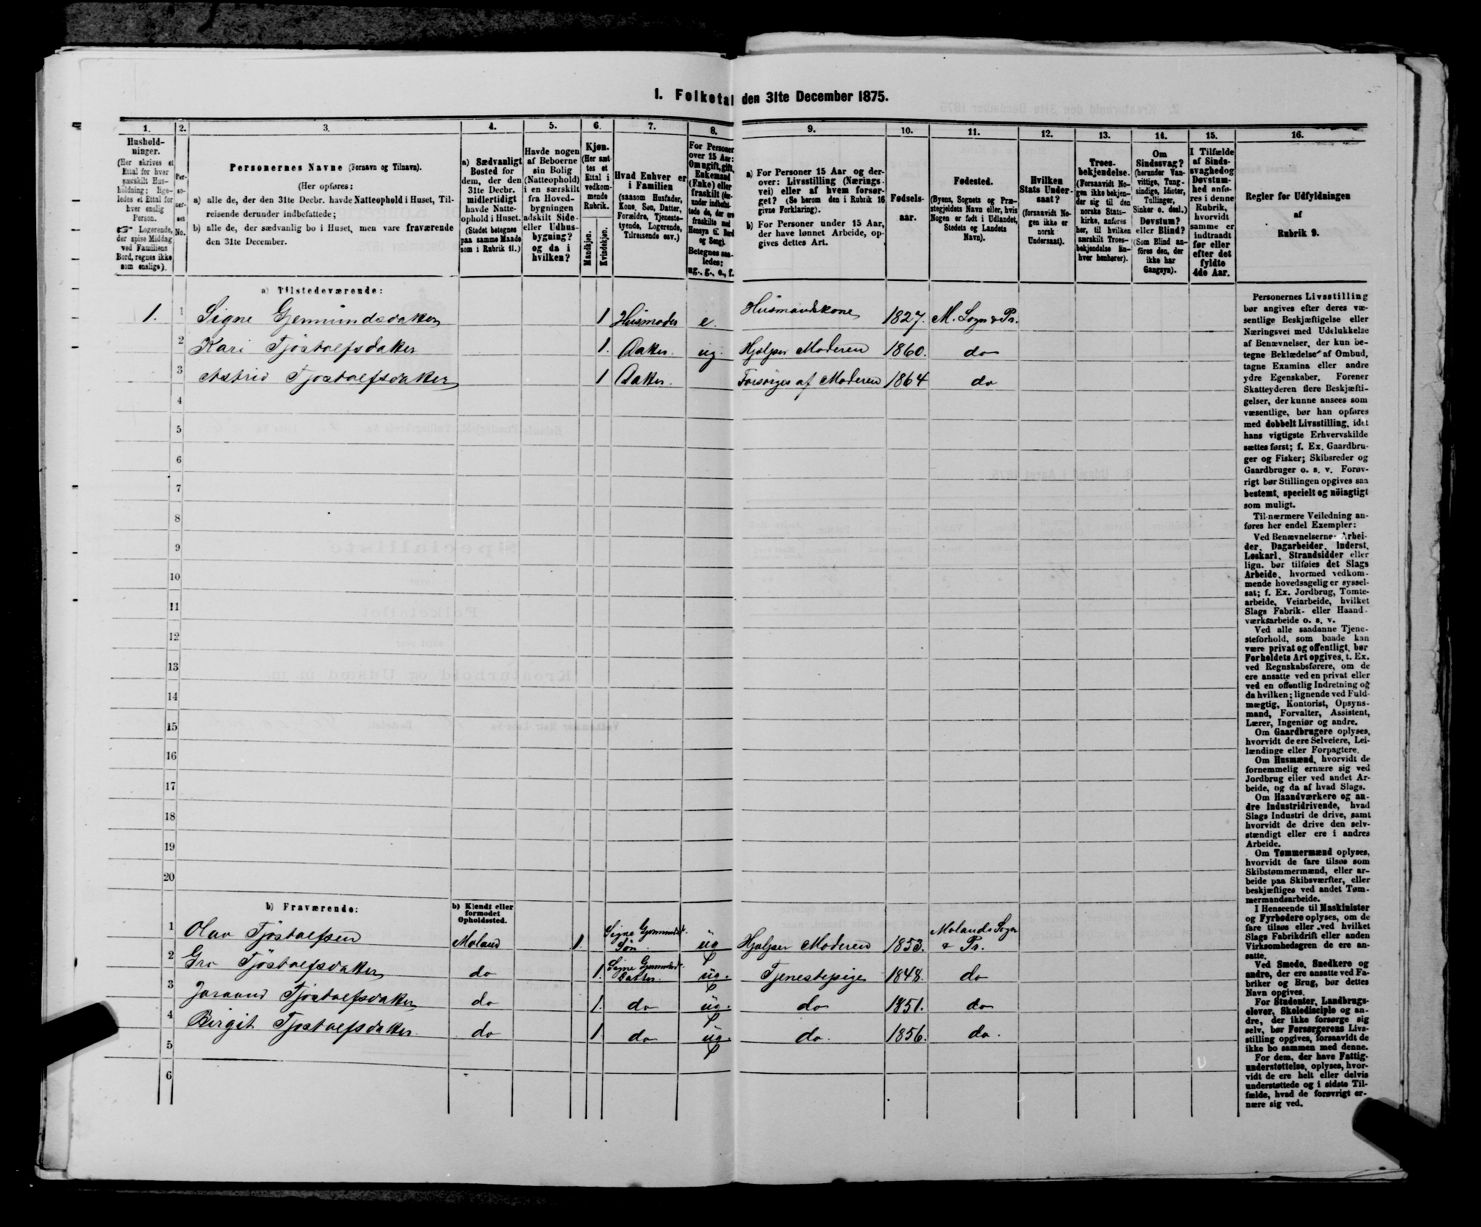 1. Folketal den 31te December 1875.
1. 2. 3. 4. 5. 6. 7. 8. 9. 10. 11. 12. 13. 14. 15. 16.
Hushold-
ninger.
(Her skrives et
Ettal for hver
særskilt Hus-
holdning; lige-
ledes et Ettal for
hver enslig
Person.
☞ Logerende,
der spise Middag
ved Familiens
Bord, regnes ikke
som enslige).
Per-
so-
ner-
nes
No.
Personernes Navne (Fornavn og Tilnavn).
(Her opføres:
a) alle de, der den 31te Decbr. havde Natteophold i Huset, Til-
reisende derunder indbefattede;
b) alle de, der sædvanlig bo i Huset, men vare fraværende
den 31te December.
a) Sædvanligt
Bosted for
dem, der den
31te Decbr.
midlertidigt
havde Natte-
ophold i Huset.
(Stedet betegnes
paa samme Maade
som i Rubrik 11.)
Havde nogen
af Beboerne
sin Bolig
(Natteophold)
i en særskilt
fra Hoved-
bygningen
adskilt Side-
eller Udhus-
bygning?
og da i
hvilken?
Kjøn.
(Her sæt-
tes et
Ettal i
vedkom-
mende
Rubrik.
Mandkjøn.
Kvindekjøn.
Hvad Enhver er
i Familien
(saasom Husfader,
Kone, Søn, Datter,
Forældre, Tjeneste-
tyende, Logerende,
Tilreisende osv.)
For Personer
over 15 Aar:
Om ugift, gift,
Enkemand
(Enke) eller
fraskilt
Betegnes saa-
ledes:
ug., g., e., f.
a) For Personer 15 Aar og der-
over: Livsstilling (Nærings-
vei) eller af hvem forsør-
get? (Se herom den i Rubrik 16
givne Forklaring).
b) For Personer under 15 Aar,
der have lønnet Arbeide, op-
gives dettes Art.
Fødsels-
aar.
Fødested.
(Byens, Sognets og Præ-
stegjeldets Navn eller, hvis
Nogen er født i Udlandet,
Stedets og Landets
Navn).
Hvilken
Stats Under-
saat?
(forsaavidt No-
gen ikke er
norsk
Undersaat).
Troes-
bekjendelse.
(Forsaavidt No-
gen ikke bekjen-
der sig til den
norske Stats-
kirke, anføres
her, til hvilken
særskilt Troes-
bekjendelse En-
hver henhører).
Om
Sindssvag?
(herunder Van-
vittige, Tung-
sindige, Idioter,
Tullinger,
Sinker o. desl.)
Døvstum?
eller Blind?
(Som Blind an-
føres den, der
ikke har
Gangsyn).
I Tilfælde
af Sinds-
svaghed og
Døvstum-
hed anfø-
res i denne
Rubrik,
hvorvidt
samme er
indtraadt
før eller
efter det
fyldte
4de Aar.
Regler for Udfyldningen
af
Rubrik 9.
a) Tilstedeværende:
1. 1 Signe Gjermundsdatter 1 Husmoder e. Husmandskone 1827. M. Sogn & Pr.
2 Kari Tjostolfsdatter 1. Datter. ug. Hjelper Moderen 1860. do
3 Astrid Tjostolfsdatter 1 Datter. Forsørges af Moderen 1864 do
4
5
6
7
8
9
10
11
12
13
14
15
16
17
18
19
20
b) Fraværende:
b) Kjendt eller
formodet
Opholdssted.
1 Olav Tjostolfsen Moland 1 Signe Gjermundsd. Søn. ug Hjelper Moderen 1853. Molands Sogn & Pr.
2 Gro Tjostolfsdatter do 1. Signe Gjermundsd. Datter. ug. Tjenestepige 1848. do
3 Joraand Tjostolfsdatter do 1. do ug. do 1851. do
4 Birgit Tjostolfsdatter. do 1 do ug. do. 1856. do.
5
6
Personernes Livsstilling
bør angives efter deres væ-
sentlige Beskjæftigelse eller
Næringsvei med Udelukkelse
af Benævnelser, der kun be-
tegne Beklædelse af Ombud,
tagne Examina eller andre
ydre Egenskaber. Forener
Skatteyderen flere Beskjæfti-
gelser, der kunne ansees som
væsentlige, bør han opføres
med dobbelt Livsstilling, idet
hans vigtigste Erhvervskilde
sættes først; f. Ex. Gaardbru-
ger og Fisker; Skibsreder og
Gaardbruger o. s. v. Forøv-
rigt bør Stillingen opgives saa
bestemt, specielt og nöiagtigt
som muligt.
Til nærmere Veiledning an-
føres her endel Exempler:
Ved Benævnelserne: Arbei-
der, Dagarbeider, Inderst,
Løskarl, Strandsidder eller
lign. bør tilføies det Slags
Arbeide, hvormed vedkom-
mende hovedsagelig er syssel-
sat; f. Ex. Jordbrug, Tomte-
arbeide, Veiarbeide, hvilket
Slags Fabrik- eller Haand-
værksarbeide o. s. v.
Ved alle saadanne Tjene-
steforhold, som baade kan
være privat og offentligt, bør
Forholdets Art opgives, t. Ex.
ved Regnskabsførere, om de
ere ansatte ved en privat eller
ved en offentlig Indretning og
da hvilken; lignende ved Fuld-
mægtig, Kontorist, Opsyns-
mand, Forvalter, Assistent,
Lærer, Ingeniør og andre.
Om Gaardbrugere oplyses,
hvorvidt de ere Selveiere, Lei-
lændinge eller Forpagtere.
Om Husmænd, hvorvidt de
fornemmelig ernære sig ved
Jordbrug eller ved andet Ar-
beide, og da af hvad Slags.
Om Haandværkere og an-
dre Industridrivende, hvad
Slags Industri de drive, samt
hvorvidt de drive den selv-
stændigt eller ere i andres
Arbeide.
Om Tømmermænd oplyses,
hvorvidt de fare tilsøs som
Skibstømmermænd, eller ar-
beide paa Skibsværfter, eller
beskjæftiges ved andet Tøm-
mermandsarbeide.
I Henseende til Maskinister
og Fyrbødere oplyses, om de
fare tilsøs eller ved hvilket
Slags Fabrikdrift eller anden
Virksomhedsgren de ere an-
satte.
Ved Smede, Snedkere og
andre, der ere ansatte ved Fa-
briker og Brug, bør dettes
Navn opgives.
For Studenter, Landbrugs-
elever, Skoledisciple og an-
dre, der ikke forsørge sig
selv, bør Forsørgerens Livs-
stilling opgives, forsaavidt de
ikke bo sammen med denne.
For dem, der have Fattig-
understøttelse, oplyses, hvor-
vidt de ere helt eller delvis
understøttede og i sidste Til-
fælde, hvad de forøvrigt er-
nære sig ved.